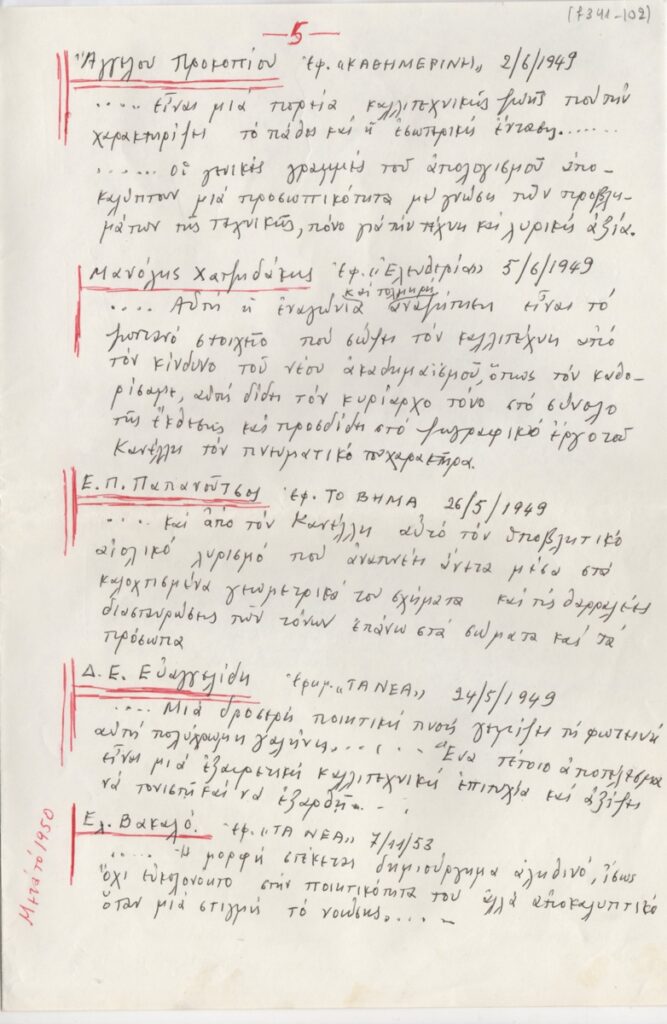 (7341-102)
—5—
Ἄγγελου Προκοπίου ἐφ. „ΚΑΘΗΜΕΡΙΝΗ„ 2/6/1949
..... εἶναι μιά πορεία καλλιτεχνικῆς ζωῆς πού τήν
χαρακτηρίζει τό πάθος καί ἡ ἐσωτερική ἔνταση......
...... οἱ γενικές γραμμές τοῦ ἀπολογισμοῦ ἀπο-
καλύπτουν μιά προσωπικότητα μέ γνώση τῶν προβλη-
μάτων τῆς τεχνικῆς, πόνο γιά τήν τέχνη καί λυρική ἀξία.
Μανόλης Χατζιδάκης ἐφ. „Ἐλευθερία„ 5/6/1949
καί τολμηρή
.... Αὐτή ἡ ἐναγώνια ἀναζήτηση εἶναι τό
ζωντανό στοιχεῖο πού σώζει τόν καλλιτέχνη ἀπό
τόν κίνδυνο τοῦ νέου ἀκαδημαϊσμοῦ, ὅπως τόν καθο-
ρίσαμε, αὐτή δίδει τόν κυρίαρχο τόνο στό σύνολο
τῆς ἔκθεσης καί προσδίδει στό ζωγραφικό ἔργο τοῦ
Κανέλλη τόν πνευματικό του χαρακτῆρα.
Ε. Π. Παπανοῦτσος ἐφ. ΤΟ ΒΗΜΑ 26/5/1949
.... καί ἀπό τόν Κανέλλη αὐτό τόν ὑποβλητικό
αἰολικό λυρισμό πού ἀναπνέει ἄνετα μέσα στά
καλοχτισμένα γεωμετρικά του σχήματα καί τίς θαρραλέες
διασταυρώσεις τῶν τόνων ἐπάνω στά σώματα καί τά
πρόσωπα
Δ. Ε. Εὐαγγελίδη ἐφημ. „ΤΑ ΝΕΑ„ 24/5/1949
.... Μιά δροσερή ποιητική πνοή γεμίζει τή φωτεινή
αὐτή πολύχρωμη γαλήνη.... Ἕνα τέτοιο ἀποτέλεσμα
εἶναι μιά ἐξαιρετική καλλιτεχνική ἐπιτυχία καί ἀξίζει
νά τονιστῆ καί νά ἐξαρθῆ...
Ελ. Βακαλό. ἐφ. „ΤΑ ΝΕΑ„ 7/11/53
..... Ἡ μορφή στέκεται δημιούργημα ἀληθινό, ἴσως
ὄχι εὐκολονόητο στήν ποιητικότητα του ἀλλά ἀποκαλυπτικό
ὅταν μιά στιγμή τό νοιώσεις.....
Μετά τό 1950